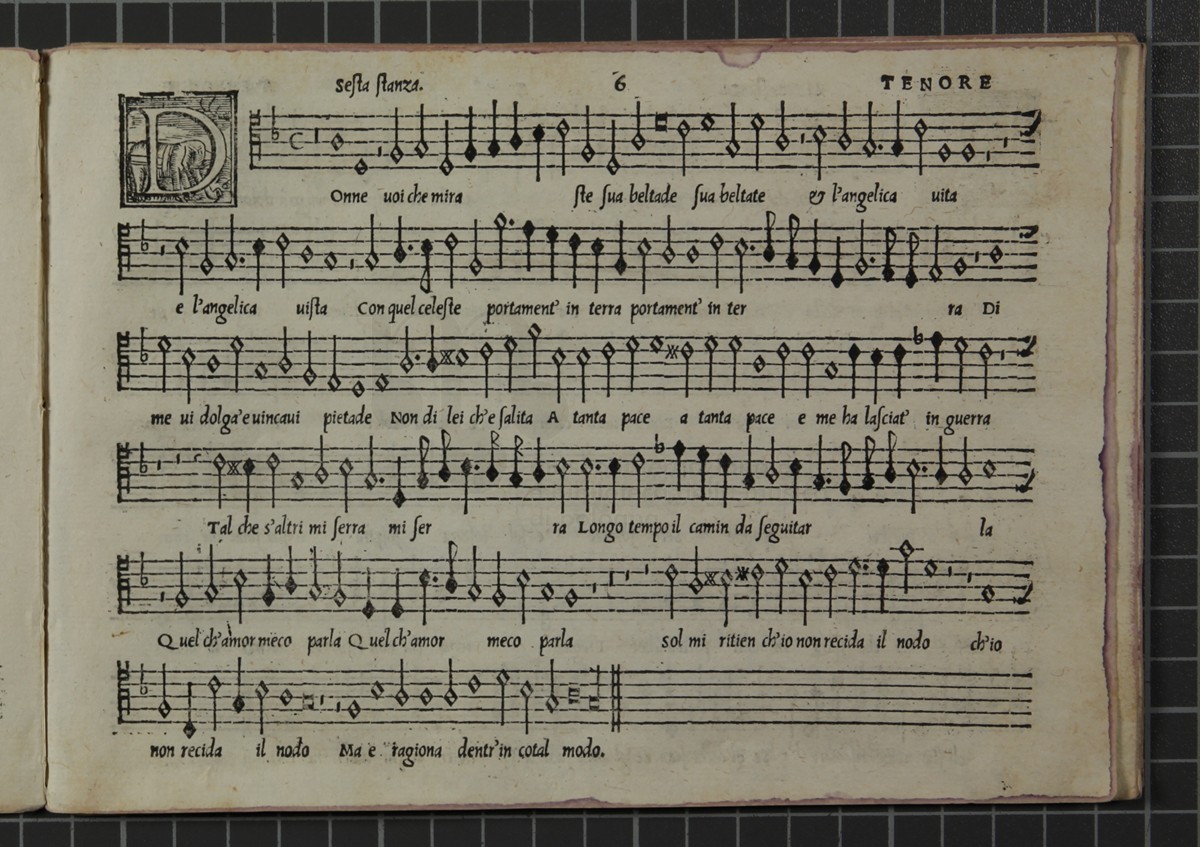 Seſta ſtanza. 6 TENORE
DOnne uoi che mira ſte ſua beltade ſua beltate & l'angelica uita
e l'angelica uiſta Con quel celeſte portament' in terra portament' in ter ra Di
me ui dolga'e uincaui pietade Non di lei ch'e ſalita A tanta pace a tanta pace e me ha laſciat' in guerra
Tal che s'altri mi ſerra mi ſer ra Longo tempo il camin da ſeguitar la
Quel ch'amor meco parla Quel ch'amor meco parla sol mi ritien ch'io non recida il nodo ch'io
non recida il nodo Ma e ragiona dentr'in cotal modo.